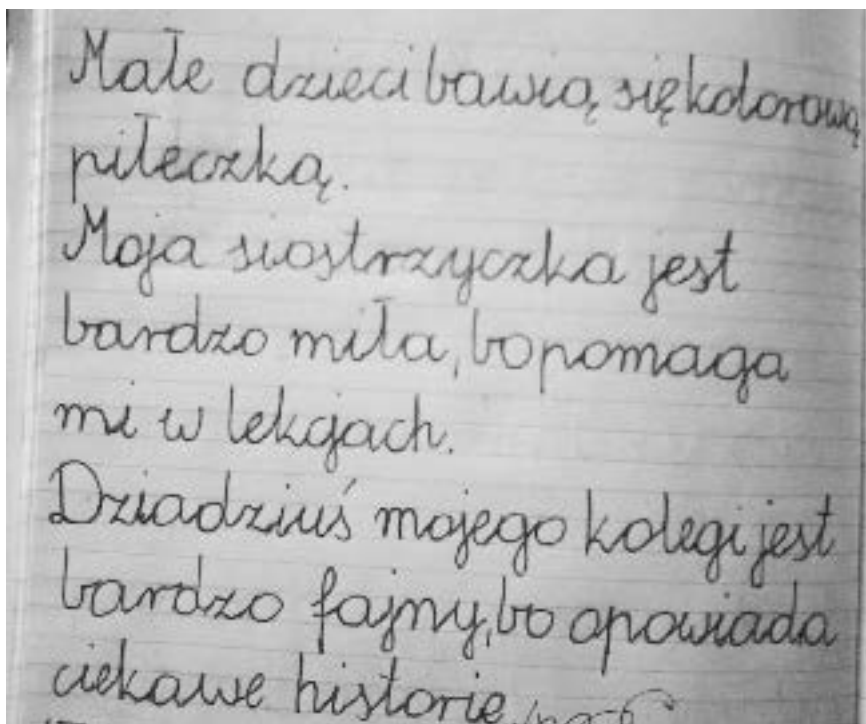 Małe dzieci bawią się kolorową
piłeczką.
Moja siostrzyczka jest
bardzo miła, bo pomaga
mi w lekcjach.
Dziadziuś mojego kolegi jest
bardzo fajny, bo opowiada
ciekawe historie